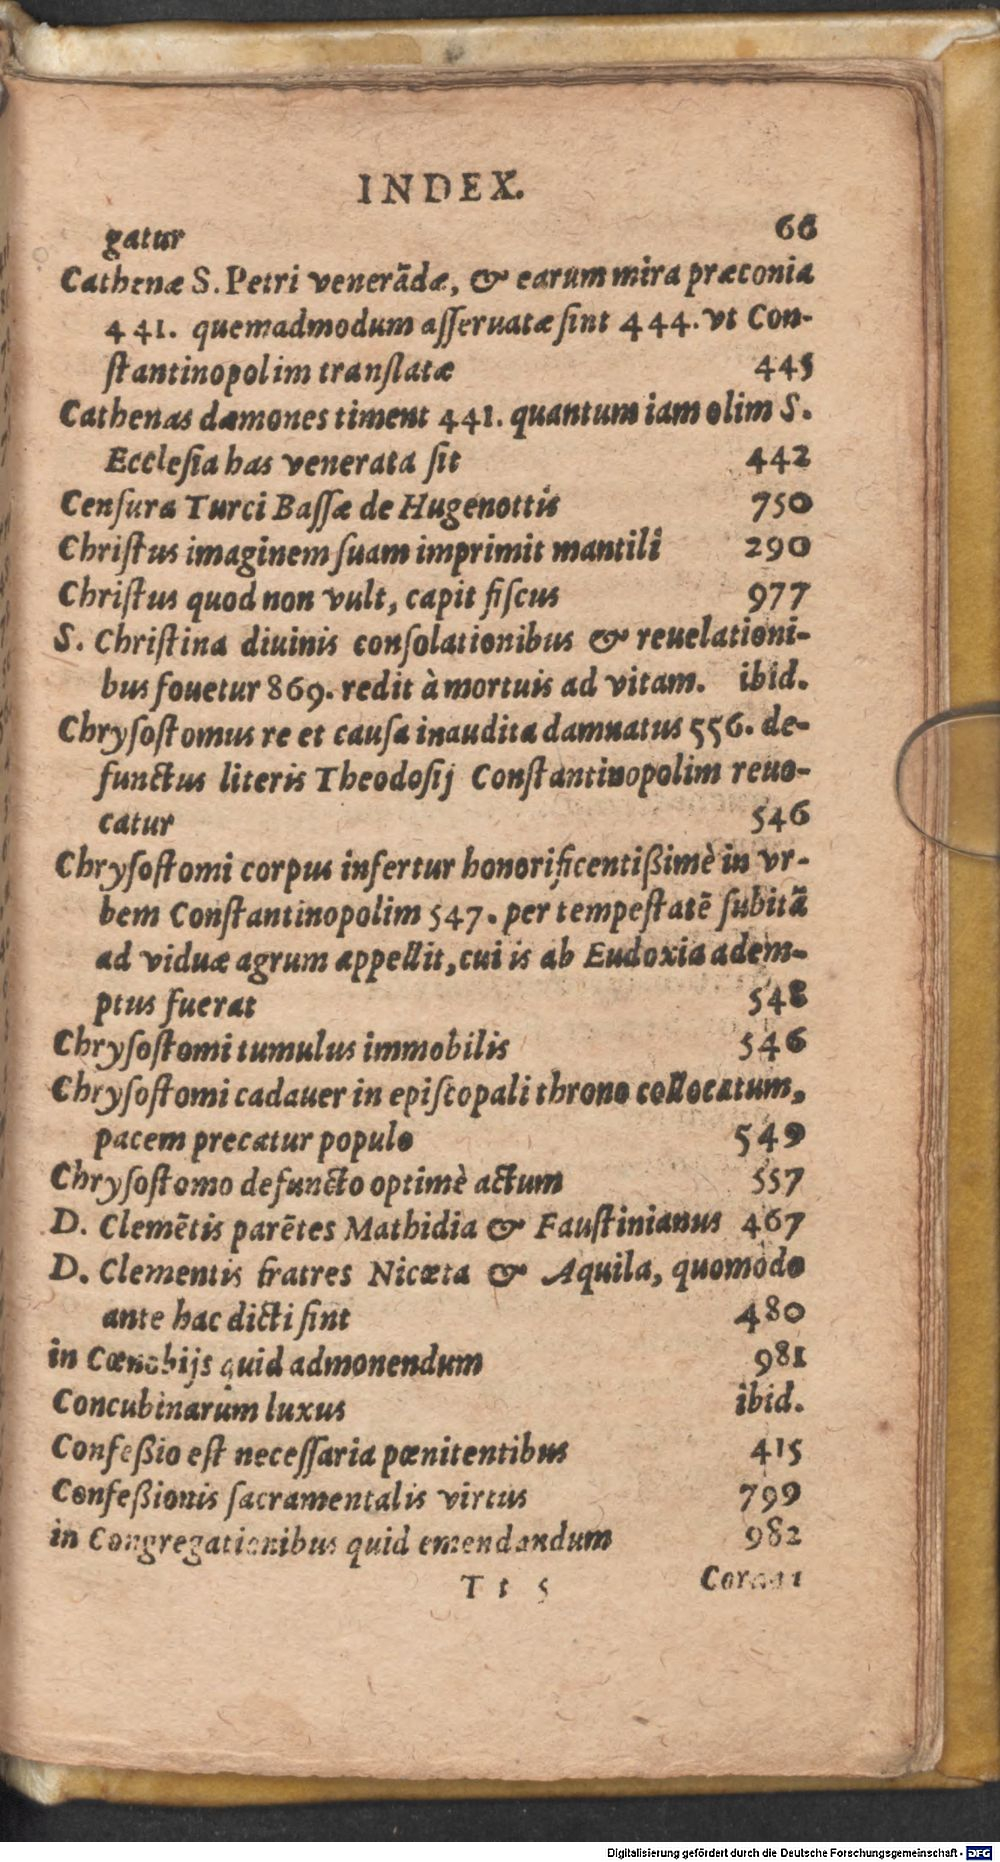 INDEX.
gatur 66
Cathenæ S. Petri venerādæ, & earum mira præconia
441. quemadmodum aſſeruatæ ſint 444. vt Con-
ſtantinopolim tranſlatæ 445
Cathenas dæmones timent 441. quantum iam olim S.
Eccleſia has venerata ſit 442
Cenſura Turci Baſſæ de Hugenottis 750
Chriſtus imaginem ſuam imprimit mantili 290
Chriſtus quod non vult, capit fiſcus 977
S. Chriſtina diuinis conſolationibus & reuelationi-
bus fouetur 869. redit à mortuis ad vitam. ibid.
Chryſoſtomus re et cauſa inaudita damnatus 556. de-
functus literis Theodoſij Conſtantinopolim reuo-
catur 546
Chryſoſtomi corpus infertur honorificentißimè in vr-
bem Conſtantinopolim 547. per tempeſtatē ſubitā
ad viduæ agrum appellit, cui is ab Eudoxia adem-
ptus fuerat 548
Chryſoſtomi tumulus immobilis 546
Chryſoſtomi cadauer in epiſcopali throno collocatum,
pacem precatur populo 549
Chryſoſtomo defuncto optimè actum 557
D. Clemētis parētes Mathidia & Fauſtinianus 467
D. Clementis fratres Nicæta & Aquila, quomodo
ante hac dicti ſint 480
in Cœnobijs quid admonendum 981
Concubinarum luxus ibid.
Confeßio eſt neceſſaria pœnitentibus 415
Confeßionis ſacramentalis virtus 799
in Congregationibus quid emendandum 982
T t 5
Digitalisierung gefördert durch die Deutsche Forschungsgemeinschaft - DFG